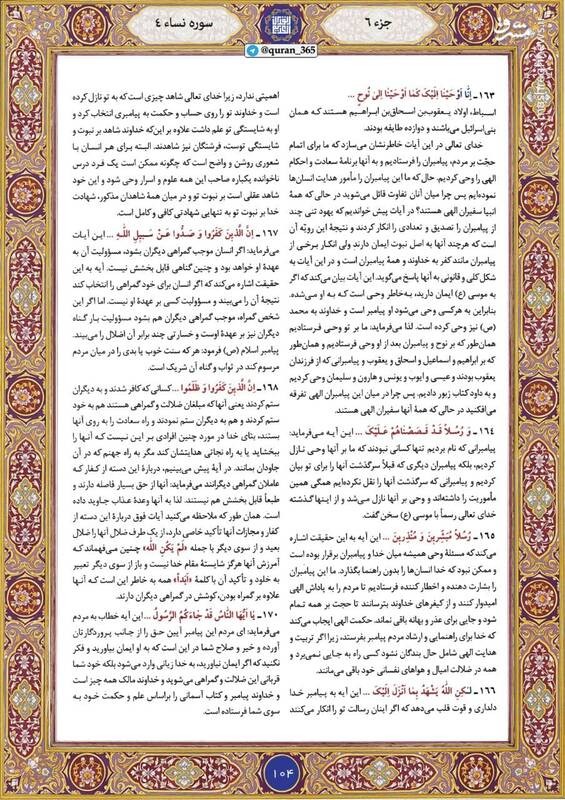 جزء ۶
سوره نساء ۴
@quran_365
مشرق
۱۶۳ـ اِنّا اَوْحَیْنا اِلَیْکَ کَما اَوْحَیْنا اِلی نُوحٍ ...
اسـباط، اولاد یـعقوب‌بن اسـحاق‌بن ابراهیـم هستند کـه همـان
بنی‌اسرائیل می‌باشند و دوازده طایفه بودند.
خدای تعالی در این آیات خاطرنشان می‌سازد که ما برای اتمام
حجّت بر مردم، پیامبران را فرستادیم و به آنها برنامهٔ سعادت و احکام
الهی را وحی کردیم. حال که ما این پیامبران را مأمور هدایت انسان‌ها
نموده‌ایم پس چرا میان آنان تفاوت قائل می‌شوید در حالی که همهٔ
انبیا سفیران الهی هستند؟ در آیات پیش خواندیم که یهود تنی چند
از پیامبران را تصدیق و تعدادی را انکار کردند و نتیجهٔ این رویّه آن
است که هرچند آنها به اصل نبوت ایمان دارند ولی انکار برخی از
پیامبران مانند کفر به خداوند و همهٔ پیامبران است و در این آیات به
شکل کلی و قانونی به آنها پاسخ می‌گوید. این آیات بیان می‌کند که اگر
به موسی (ع) ایمان دارید، به‌خاطر وحی است کـه بـه او می‌شده.
بنابراین به هرکسی وحی می‌شود او پیامبر است و خداوند به محمد
(ص) نیز وحی کرده است. لذا می‌فرماید: ما بر تو وحی فرستادیم
همان‌طور که بر نوح و پیامبران بعد از او وحی فرستادیم و همان‌طور
که بر ابراهیم و اسماعیل و اسحاق و یعقوب و پیامبرانی که از فرزندان
یعقوب بودند و عیسی و ایوب و یونس و هارون و سلیمان وحی کردیم
و به داود کتاب زبور دادیم. پس چرا در میان این پیامبران الهی تفرقه
می‌افکنید در حالی که همهٔ آنها سفیران الهی هستند.
۱۶۴ـ وَ رُسُلاً قَد قَصَصْناهُمْ عَلَیْکَ ... این آیـه می‌فرماید:
پیامبرانی که نام بردیم تنها کسانی نبودند که ما بر آنها وحـی نـازل
کردیم، بلکه پیامبران دیگری که قبلاً سرگذشت آنها را برای تو بیان
کردیم و پیامبرانی که سرگذشت آنها را نقل نکرده‌ایم همگی همین
مأموریت را داشته‌اند و وحی بر آنها نازل می‌شد و از اینها گذشته
خدای تعالی رسماً با موسی (ع) سخن گفت.
۱۶۵ـ رُسُلاً مُبَشِّرینَ وَ مُنْذِرینَ ... این آیه به این حقیقت اشاره
می‌کند که مسئلهٔ وحی همیشه میان خدا و پیامبران برقرار بوده است
و ممکن نبود که خدا انسان‌ها را بدون راهنما بگذارد. ما این پیامبران
را بشارت دهنده و اخطار کننده فرستادیم تا مردم را به پاداش الهی
امیدوار کنند و از کیفرهای خداوند بترسانند تا حجت بر همه تـمام
شود و جایی برای عذر و بهانه باقی نماند. حکمت الهی ایجاب می‌کند
که خدا برای راهنمایی و ارشاد مردم پیامبر بفرستد، زیرا اگر تربیت و
هدایت الهی شامل حال بندگان نشود کسی راه به جایی نمی‌برد و
همه در ضلالت امیال و هواهای نفسانی خود باقی می‌مانند.
۱۶۶ـ لـٰکِنِ اللّٰهُ یَشْهَدُ بِما اَنْزَلَ اِلَیْکَ ... این آیه به پیامبر خدا
دلداری و قوت قلب می‌دهد که اگر اینان رسالت تو را انکار می‌کنند
اهمیتی ندارد، زیرا خدای تعالی شاهد چیزی است که به تو نازل کرده
است و خداوند تو را روی حساب و حکمت به پیامبری انتخاب کرد و
او به شایستگی تو علم داشت علاوه بر این‌که خداوند شاهد بر نبوت و
شایستگی توست، فرشتگان نیز شاهدند. البته برای هر انسان بـا
شعوری روشن و واضح است که چگونه ممکن است یک فرد درس
ناخوانده یکباره صاحب این همه علوم و اسرار وحی شود و این خود
شاهد عقلی است بر نبوت تو و در میان همهٔ شاهدان مذکور، شهادت
خدا بر نبوت تو به تنهایی شهادتی کافی و کامل است.
۱۶۷ـ اِنَّ الَّذینَ کَفَرُوا وَ صَدُّوا عَنْ سَبیلِ اللّٰهِ ... این آیـات
می‌فرماید: اگر انسان موجب گمراهی دیگران بشود، مسؤولیت آن به
عهدهٔ او خواهد بود و چنین گناهی قابل بخشش نیست. آیه به این
حقیقت اشاره می‌کند که اگر انسان برای خود گمراهی را انتخاب کند
نتیجهٔ آن را می‌بیند و مسؤولیت کسی بر عهدهٔ او نیست. اما اگر این
شخص گمراه، موجب گمراهی دیگران هم بشود مسؤولیت بار گناه
دیگران نیز بر عهدهٔ اوست و خسارتی چند برابر آن اضلال را می‌بیند.
پیامبر اسلام (ص) فرمود: هر که سنت خوب یا بدی را در میان مردم
مرسوم کند در ثواب و گناه آن شریک است.
۱۶۸ـ اِنَّ الَّذینَ کَفَرُوا وَ ظَلَمُوا ... کسانی که کافر شدند و به دیگران
ستم کردند یعنی آنها که مبلغان ضلالت و گمراهی هستند هم به خود
ستم کردند و هم به دیگران ستم نمودند و راه سعادت را به روی آنها
بستند، بنای خدا در مورد چنین افرادی بـر این نیست کـه آنها را
ببخشاید یا به راه نجاتی هدایتشان کند مگر به راه جهنم که در آن
جاودان بمانند. در آیهٔ پیش می‌بینیم، دربارهٔ این دسته از کفـار کـه
عاملان گمراهی دیگرانند می‌فرماید: آنها از حق بسیار فاصله دارند و
طبعاً قابل بخشش هم نیستند. لذا به آنها وعدهٔ عذاب جاوید داده
است. همان طور که ملاحظه می‌کنید آیات فوق دربارهٔ این دسته از
کفار و مجازات آنها تأکید خاصی دارد، از یک طرف ضلال آنها را ضلال
بعید و از سوی دیگر با جمله «لَمْ یَکُنِ اللّٰه» چنین می‌فهماند کـه
آمرزش آنها هرگز شایستهٔ مقام خدا نیست و باز از سوی دیگر تعبیر
به خلود و تأکید آن با کلمهٔ «اَبَداً» همه به خاطر این است کـه آنـها
علاوه بر گمراه بودن، کوشش در گمراهی دیگران دارند.
۱۷۰ـ یا اَیُّهَا النّاسُ قَدْ جاءَکُمُ الرَّسُولُ ... این آیه خطاب به مردم
می‌فرماید: ای مردم این پیامبر آیین حق را از جانب پروردگارتان
آورده و خیر و صلاح شما در این است که به او ایمان بیاورید و فکر
نکنید که اگر ایمان نیاورید، به خدا زیانی وارد می‌شود بلکه خود شما
قربانی این ضلالت و گمراهی می‌شوید و خداوند مالک همه چیز است
و خداوند پیامبر و کتاب آسمانی را براساس علم و حکمت خـود بـه
سوی شما فرستاده است.
۱۰۴